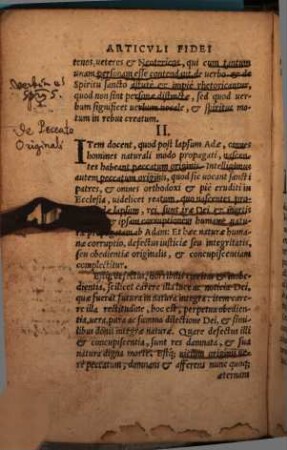 ARTICVLI FIDEI
tenos, veteres & Neotericos, qui cum tantum
unam personam esse contendant de verbo & de
Spiritu sancto astutè & impiè rhetoricantur,
quod non sint personæ distinctæ, sed quod ver
bum significet verbum vocale, & spiritus mo
tum in rebus creatum.
II.
ITem docent, quod post lapsum Adæ, omnes
homines naturali modo propagati,
habeant peccatum originis. Intelligimus
autem peccatum originis, quod sic vocant sancti pa
tres, & omnes orthodoxi & piè eruditi in
Ecclesia, videlicet reatum, quo nascentes
lapsum, rei sunt iræ Dei, &
ipsam corruptionem humanæ naturæ
ab Adam: Et hæc naturæ huma
næ corruptio, defectus iusticiæ seu integritatis,
seu obedientiæ originalis, & concupiscentiam
complectitur.
& obe
dientia, scilicet carere illa luce ac noticia Dei,
quæ fuerat futura in natura integra: item care-
re illa rectitudine, hoc est, perpetua obedien-
tia, vera, pura ac summa dilectione Dei, & simi
libus donis integræ naturæ. Quare defectus illi
& concupiscentia, sunt res damnata, & sua
natura digna morte. Estq; vicium originis ve
re peccatum, damnans & afferens nunc quoq;
æternam
de Peccato
Originali